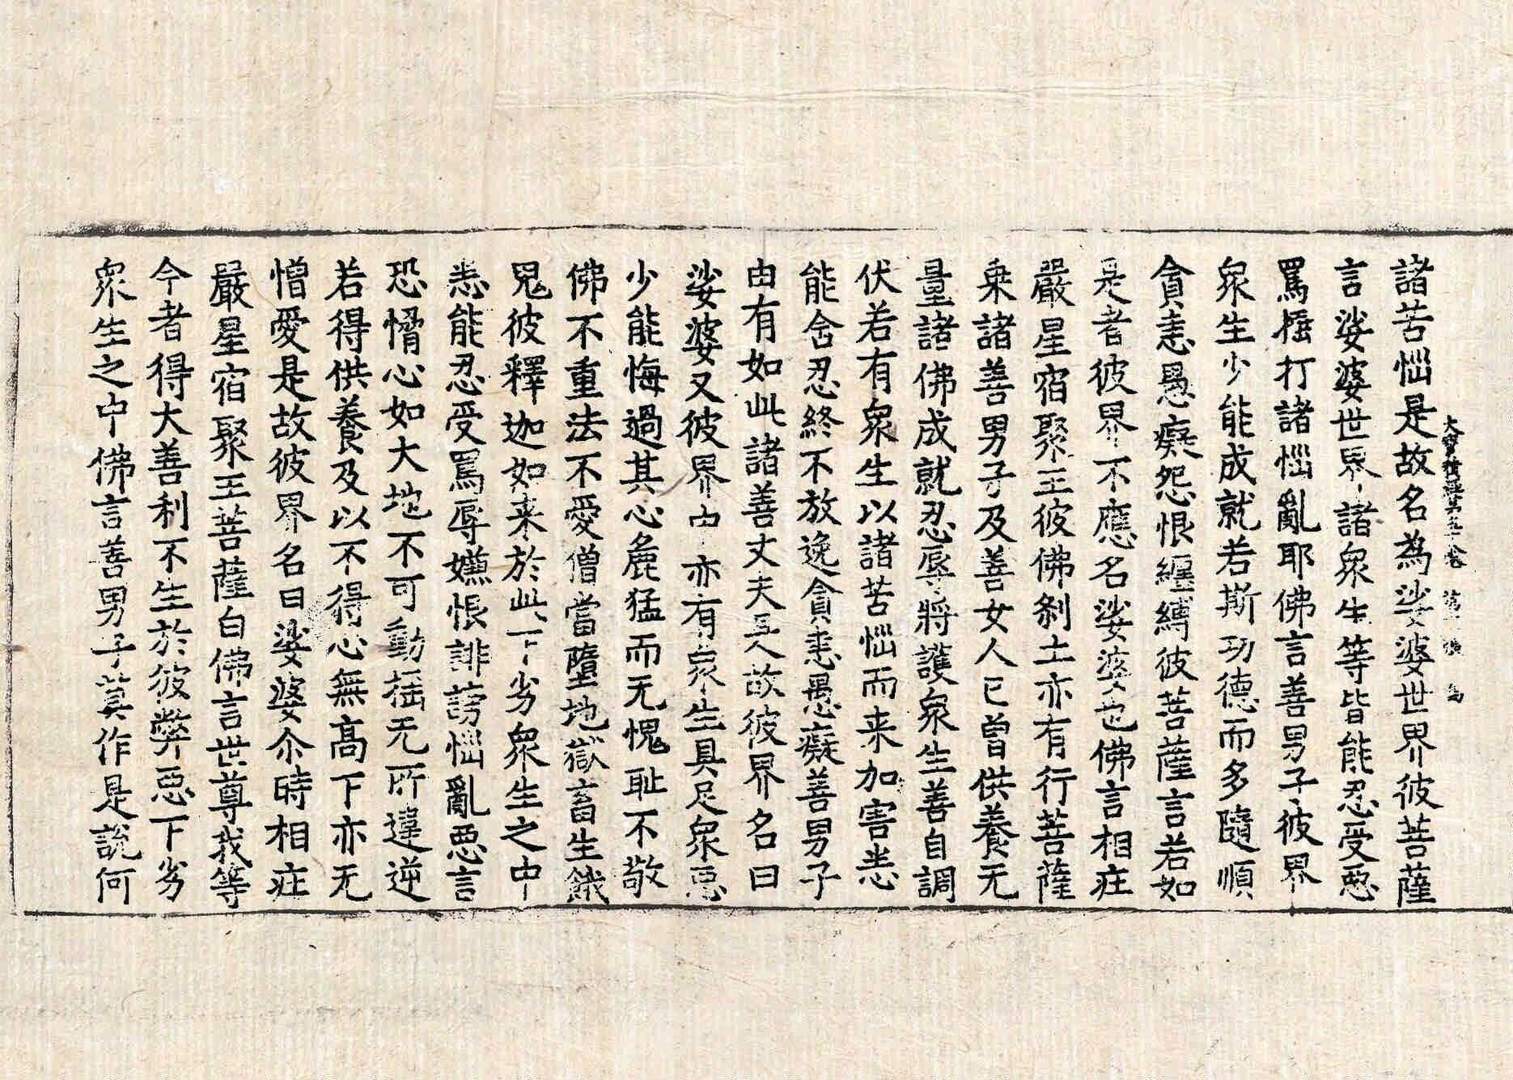 諸苦惱是故名為娑婆世界彼菩薩
大寶積經第五十卷 第
言娑婆世界諸衆生等皆能忍受惡
罵捶打諸惱亂耶佛言善男子彼界
衆生少能成就若斯功德而多隨順
貪恚愚癡怨恨纏縛彼菩薩言若如
是者彼界不應名娑婆也佛言相莊
嚴星宿聚王彼佛剎土亦有行菩薩
乘諸善男子及善女人已曾供養无
量諸佛成就忍辱將護衆生善自調
伏若有衆生以諸苦惱而来加害悉
能舍忍終不放逸貪恚愚癡善男子
由有如此諸善丈夫之人故彼界名曰
娑婆又彼界中亦有衆生具足衆惡
少能悔過其心麁猛而无愧耻不敬
佛不重法不愛僧當墮地獄畜生餓
鬼彼釋迦如来於此下劣衆生之中
悉能忍受罵辱嫌恨誹謗惱亂惡言
恐 心如大地不可動搖无所違逆
若得供養及以不得心無髙下亦无
憎愛是故彼界名曰娑婆尒時相莊
嚴星宿聚王菩薩白佛言世尊我等
今者得大善利不生於彼弊惡下劣
衆生之中佛言善男子莫作是說何